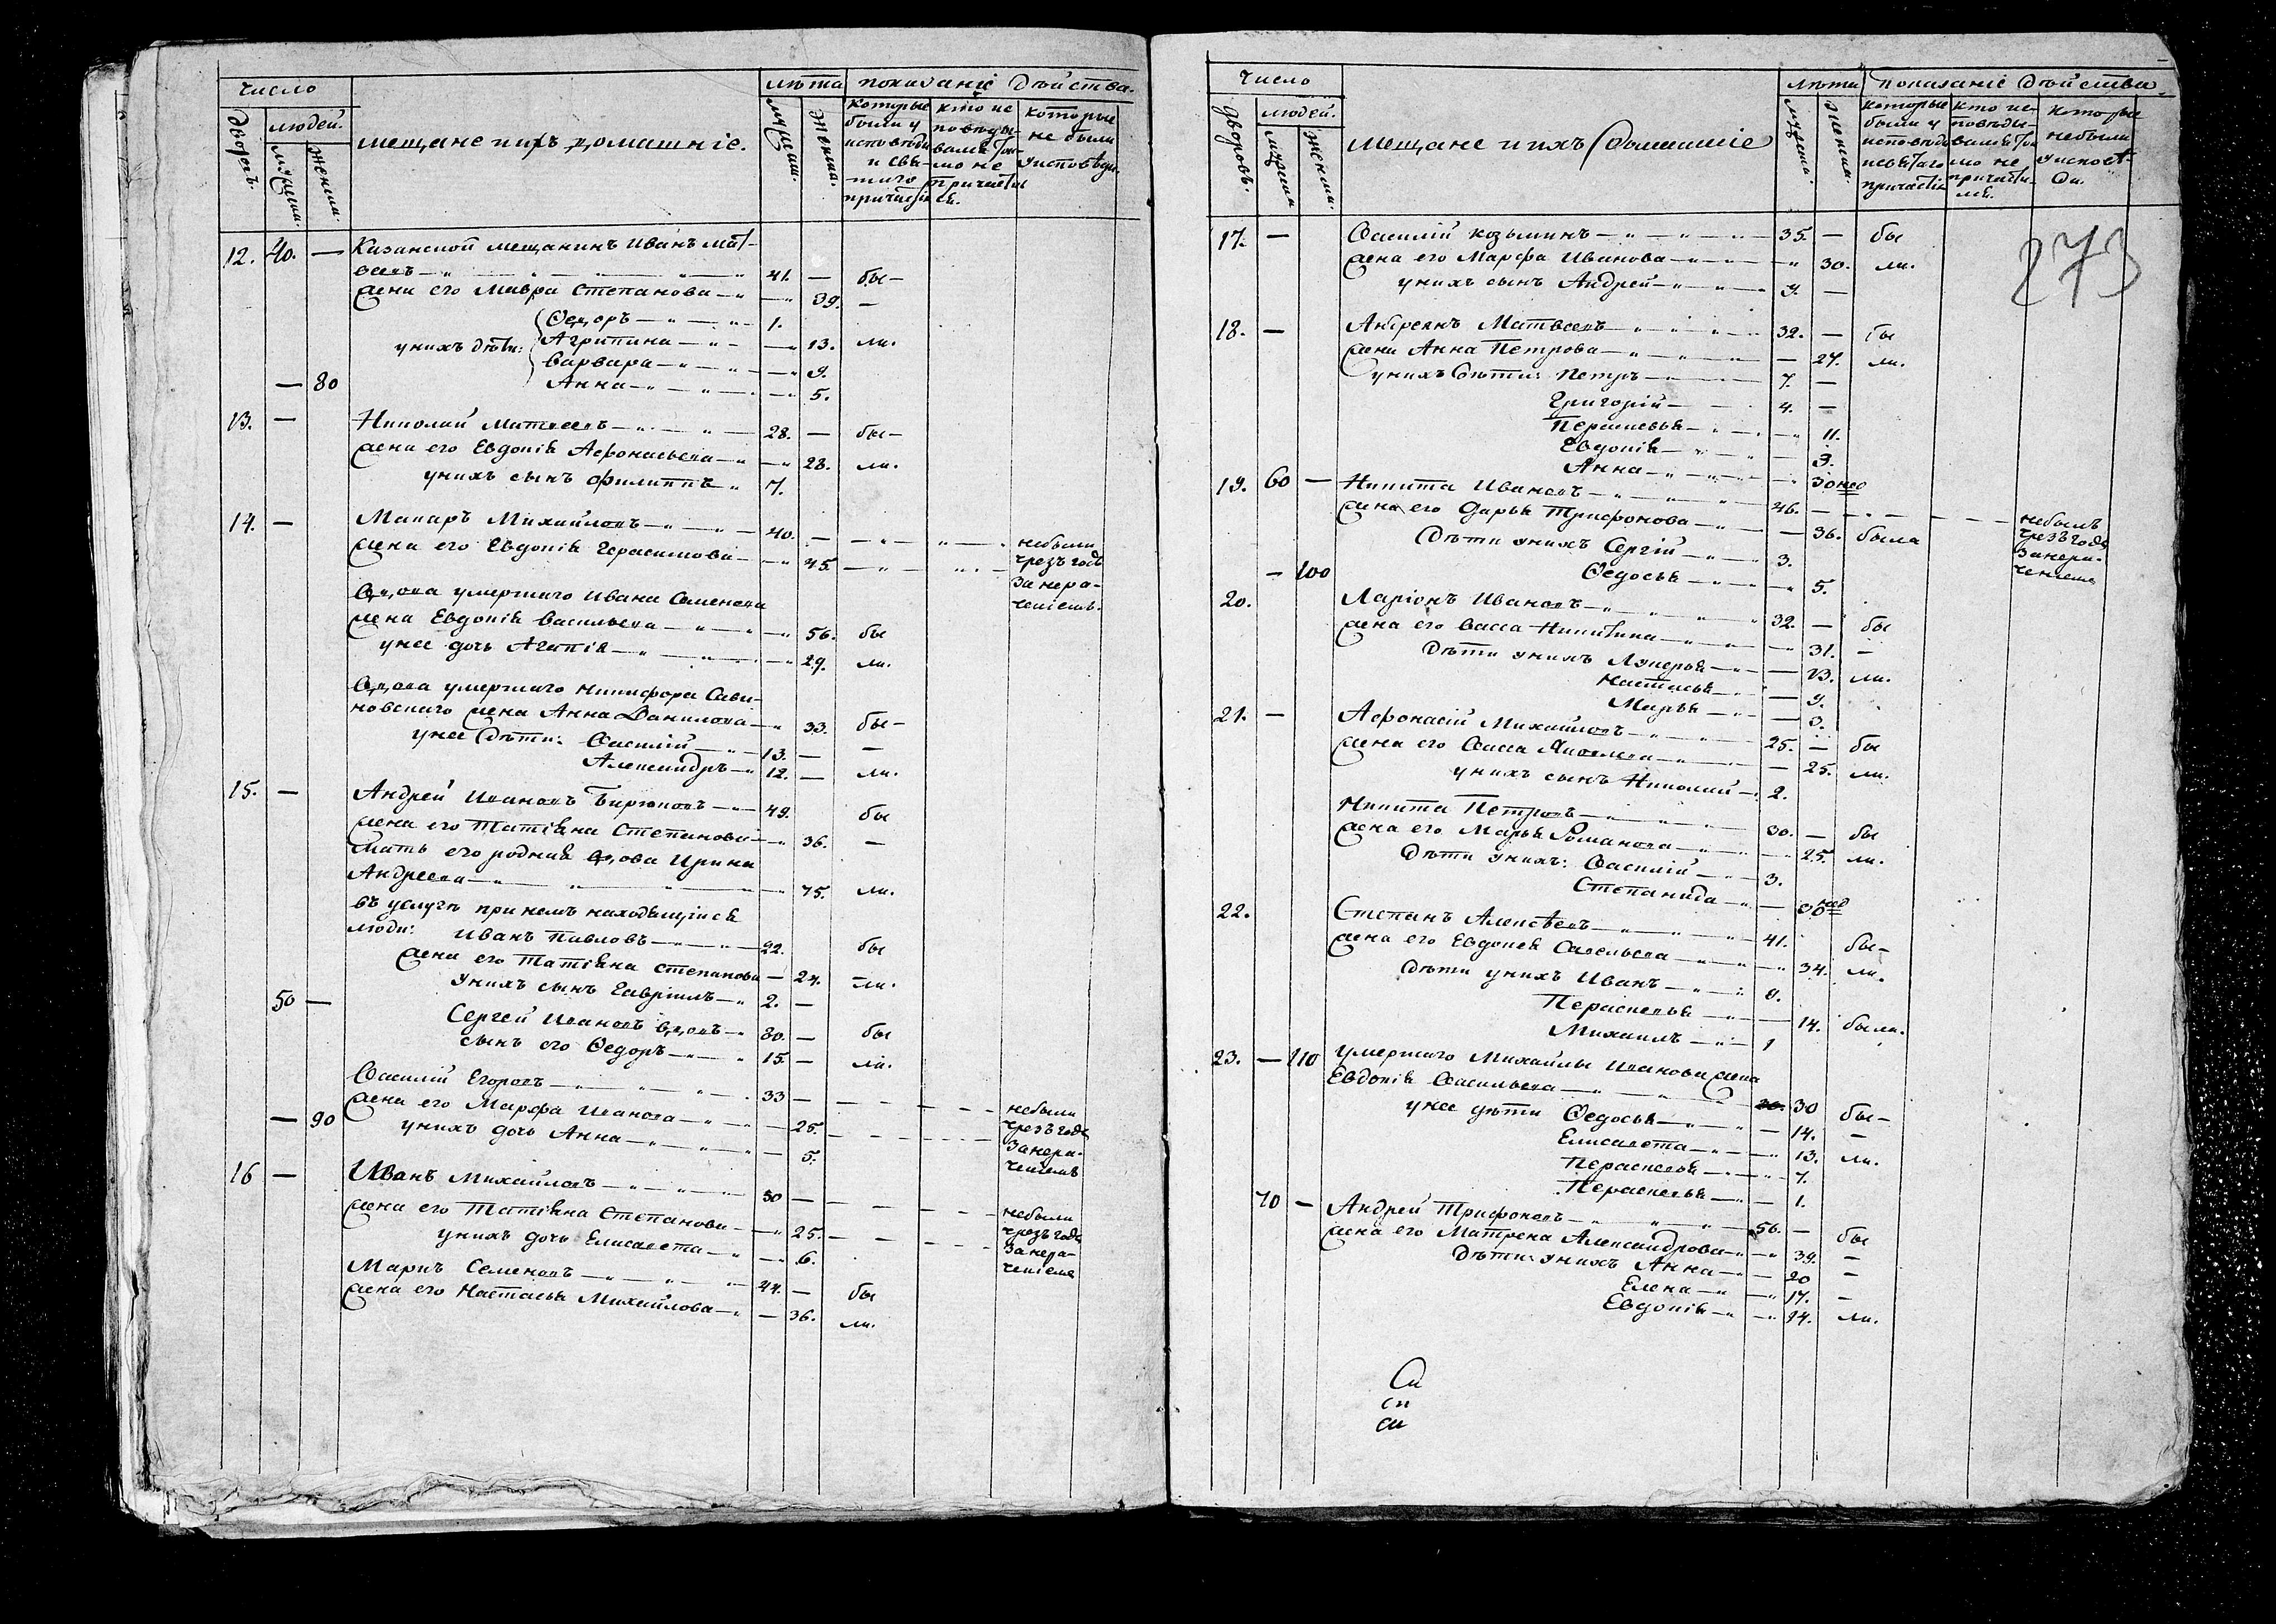 число
лѣта показаніе дѣйства.
дворовъ.
людей.
мужеска.
женска.
мещане ихъ домашніе.
мужеска.
женска.
которые были у исповѣди и свя-таго причастія
кто не повѣды-вался то-мо не причасти ся.
которые не были у исповѣди.
12. 40. — Казанской мещанинъ Иванъ Мат-
веевъ — 41. — бы-
жена его Мавра Степанова — 39. —
Ѳедоръ — 1.
у нихъ дѣти: Агрипина — 13. ли.
Варвара — 9.
— 80 Анна — 5.
13. — Николай Матвеевъ — 28. — бы-
жена его Евдокія Афонасьева — 28. ли.
у нихъ сынъ Филиппъ 7.
14. — Макаръ Михайловъ — 40. — небыли
жена его Евдокія Герасимова — 45. чрезъ годъ
за нера-
вдова умершаго Ивана Семенова ченіемъ.
жена Евдокія Васильева — 56. бы
у нее дочь Агапія — 29. ли.
вдова умершаго Никифора Сави-
новскаго жена Анна Данилова — 33. бы-
у нее дѣти: Василій — 13. —
Александръ 12. — ли.
15. — Андрей Ивановъ Бирюковъ — 49. бы
жена его Татіяна Степанова — 36. —
мать его родная вдова Ирина
Андреева — 75. ли.
въ услугѣ при немъ находящіися
люди: Иванъ Павловъ — 22. бы
жена его Татіяна Степанова — 24. ли.
у нихъ сынъ Гавріилъ 2. —
50 — Сергей Ивановъ вдовъ 30. — бы
сынъ его Ѳедоръ — 15. — ли.
Василій Егоровъ — 33 — небыли
жена его Марфа Иванова — 25. чрезъ годъ
— 90 у нихъ дочь Анна — 5. за нера-
ченіемъ
16 — Иванъ Михайловъ — 30 — небыли
жена его Татіяна Степанова — 25. чрезъ годъ
у нихъ дочь Елисавета — 6. за нера-
Маркъ Семеновъ — 44. — бы ченіемъ
жена его Настасья Михайлова — 36. ли.
число
лѣта показаніе дѣйства.
дворовъ.
людей.
мужеска
женска.
мещане и ихъ домашніе
мужеска.
женска.
которые были у исповѣди и святаго причастія
кто не-повѣды-вался то мо не причасти-лся.
которые небыли у исповѣ-ди.
273
17. — Василій Козьминъ — 35. — бы
жена его Марфа Иванова — 30. ли.
у нихъ сынъ Андрей — 9. —
18. — Андреянъ Матвеевъ — 32. — бы
жена Анна Петрова — 27. ли.
у нихъ дѣти: Петръ — 7. —
Григорій — 4. —
Перасковья — 11.
Евдокія — 9.
Анна — 30 нед
19. 60 — Никита Ивановъ — 46. — небылъ
жена его Дарья Трифонова — 36. была чрезъ годъ
дѣти у нихъ Сергій — 3. за нера-
— 100 Ѳедосья — 5. ченіемъ
20. Ларіонъ Ивановъ — 32. — бы
жена его Васса Никитина — 31. —
дѣти у нихъ Лукерья — 13. ли.
Настасья — 9.
Марья — 3.
21. — Афонасій Михайловъ — 25. — бы
жена его Васса — 25. ли.
у нихъ сынъ Николай 2.
Никита Петровъ — 30. — бы
жена его Марья Романова — 25. ли.
дѣти у нихъ: Василій — 3.
Степанида — 30 нед
22. Степанъ Алексѣевъ — 41. бы-
жена его Евдокея Савельева — 34. ли.
дѣти у нихъ Иванъ — 9.
Перасковья — 14. были.
Михаилъ — 1
23. — 110 умершаго Михайлы Иванова жена
Евдокія Васильева — 30 бы-
у нее дѣти Ѳедосья — 14. —
Елисавета — 13. ли.
Перасковья — 7.
Перасковья — 1.
70 — Андрей Трифоновъ — 56. — бы
жена его Матрена Александрова — 39. —
дѣти у нихъ Анна — 20 —
Елена — 17. —
Евдокія — 14. ли.